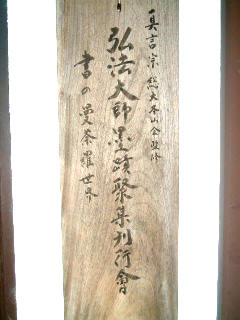 真言宗 総大本山会監修
弘法大師墨蹟聚集刊行會
書の曼荼羅世界